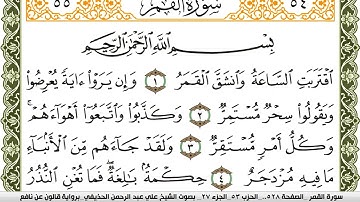 سُورَةُ القَمَرِ
بِسْمِ اللَّهِ الرَّحْمَٰنِ الرَّحِيمِ
اَقْتَرَبَتِ السَّاعَةُ وَانشَقَّ الْقَمَرُ ١ وَإِن يَرَوْاْ ءَايَةً يُعْرِضُواْ
وَيَقُولُواْ سِحْرٌ مُّسْتَمِرٌّ ٢ وَكَذَّبُواْ وَاتَّبَعُواْ أَهْوَآءَهُمْ
وَكُلُّ أَمْرٍ مُّسْتَقِرٌّ ٣ وَلَقَدْ جَآءَهُم مِّنَ الْأَنۢبَآءِ
مَا فِيهِ مُزْدَجَرٌ ٤ حِكْمَةٌۢ بَٰلِغَةٌ فَمَا تُغْنِ النُّذُرُ
سورة القمر _ الصفحة ٥٢٨ _ الحزب ٥٣ _ الجزء ٢٧ _ بصوت الشيخ علي عبد الرحمن الحذيفي _ برواية قالون عن نافع